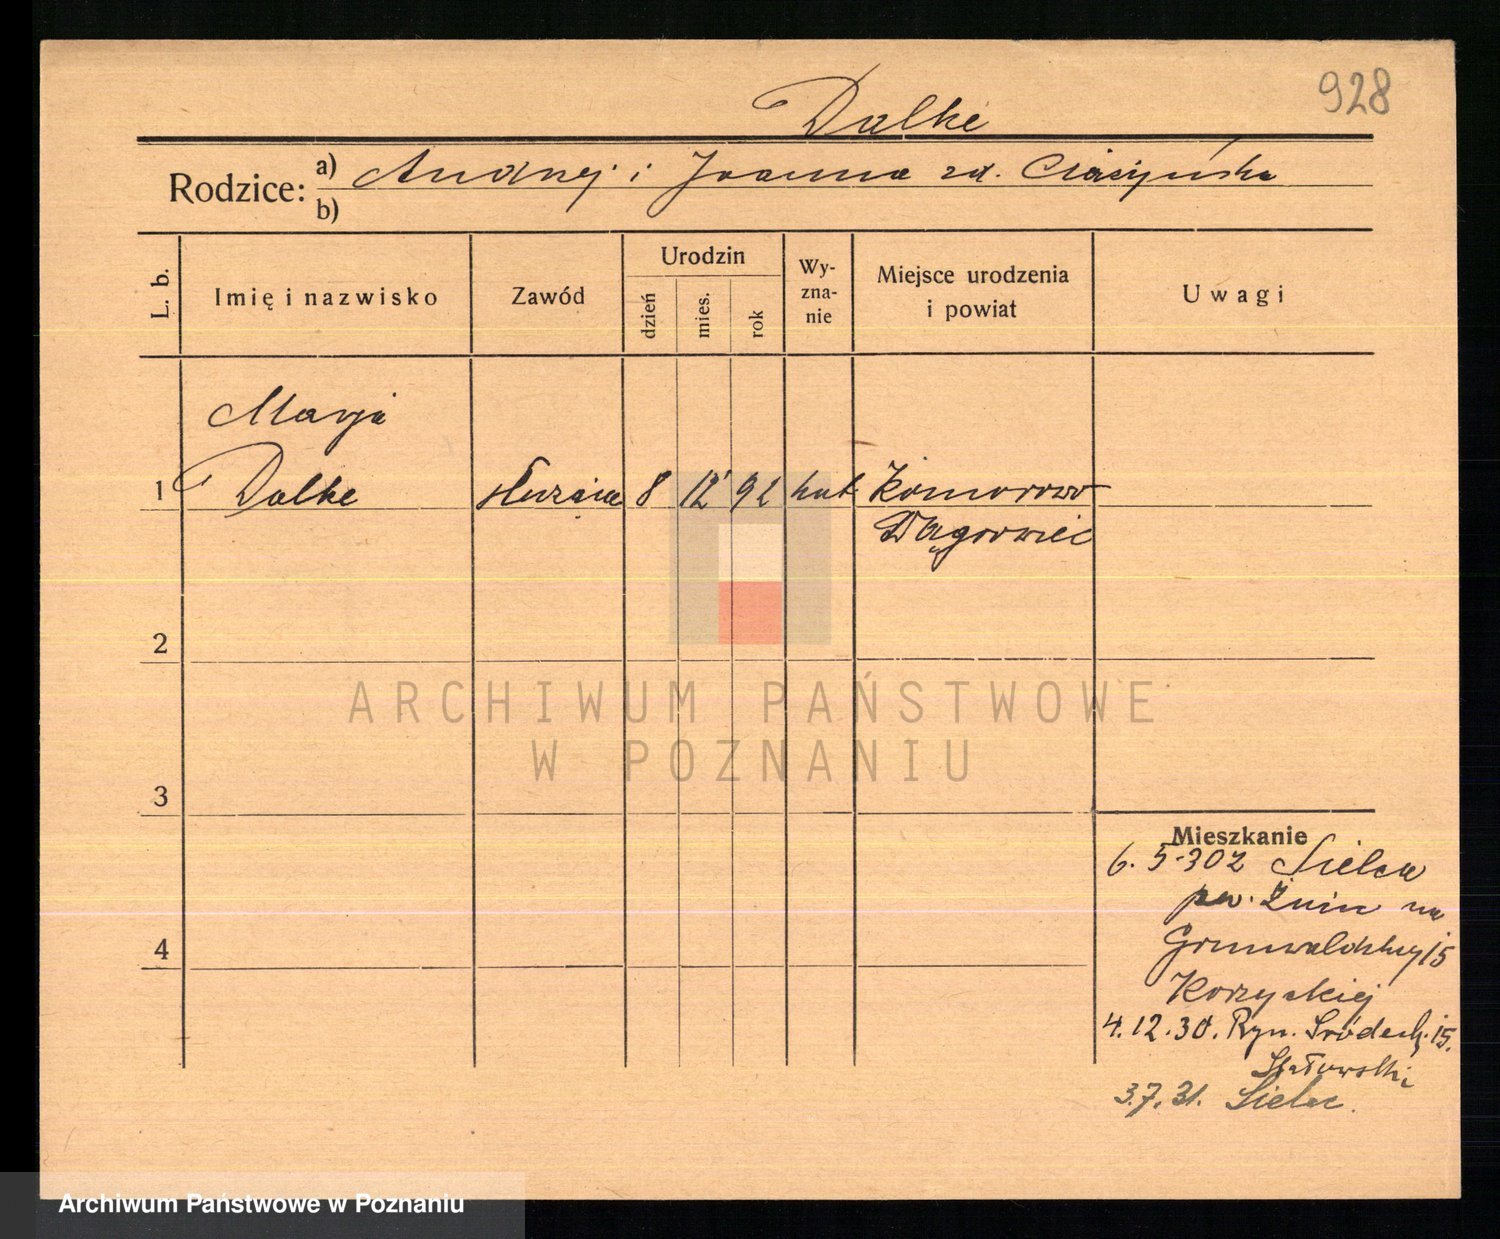 928
Dalke
Rodzice: a) Andrzej i Joanna zd. Ciażyńska
b)
L. b.
Imię i nazwisko
Zawód
Urodzin
dzień
mies.
rok
Wy-
zna-
nie
Miejsce urodzenia
i powiat
Uwagi
Marja
1 Dalke służąca 8 12 92 kat Komorowo
Wągrowiec
2
3
4
ARCHIWUM PAŃSTWOWE
W POZNANIU
Mieszkanie
6. 5. 302 Sielca
pw. Żnin na
Grunwaldzką 15
4. 12. 30. Ryn. Śródecki 15.
3.7.31. Sielec.
Archiwum Państwowe w Poznaniu